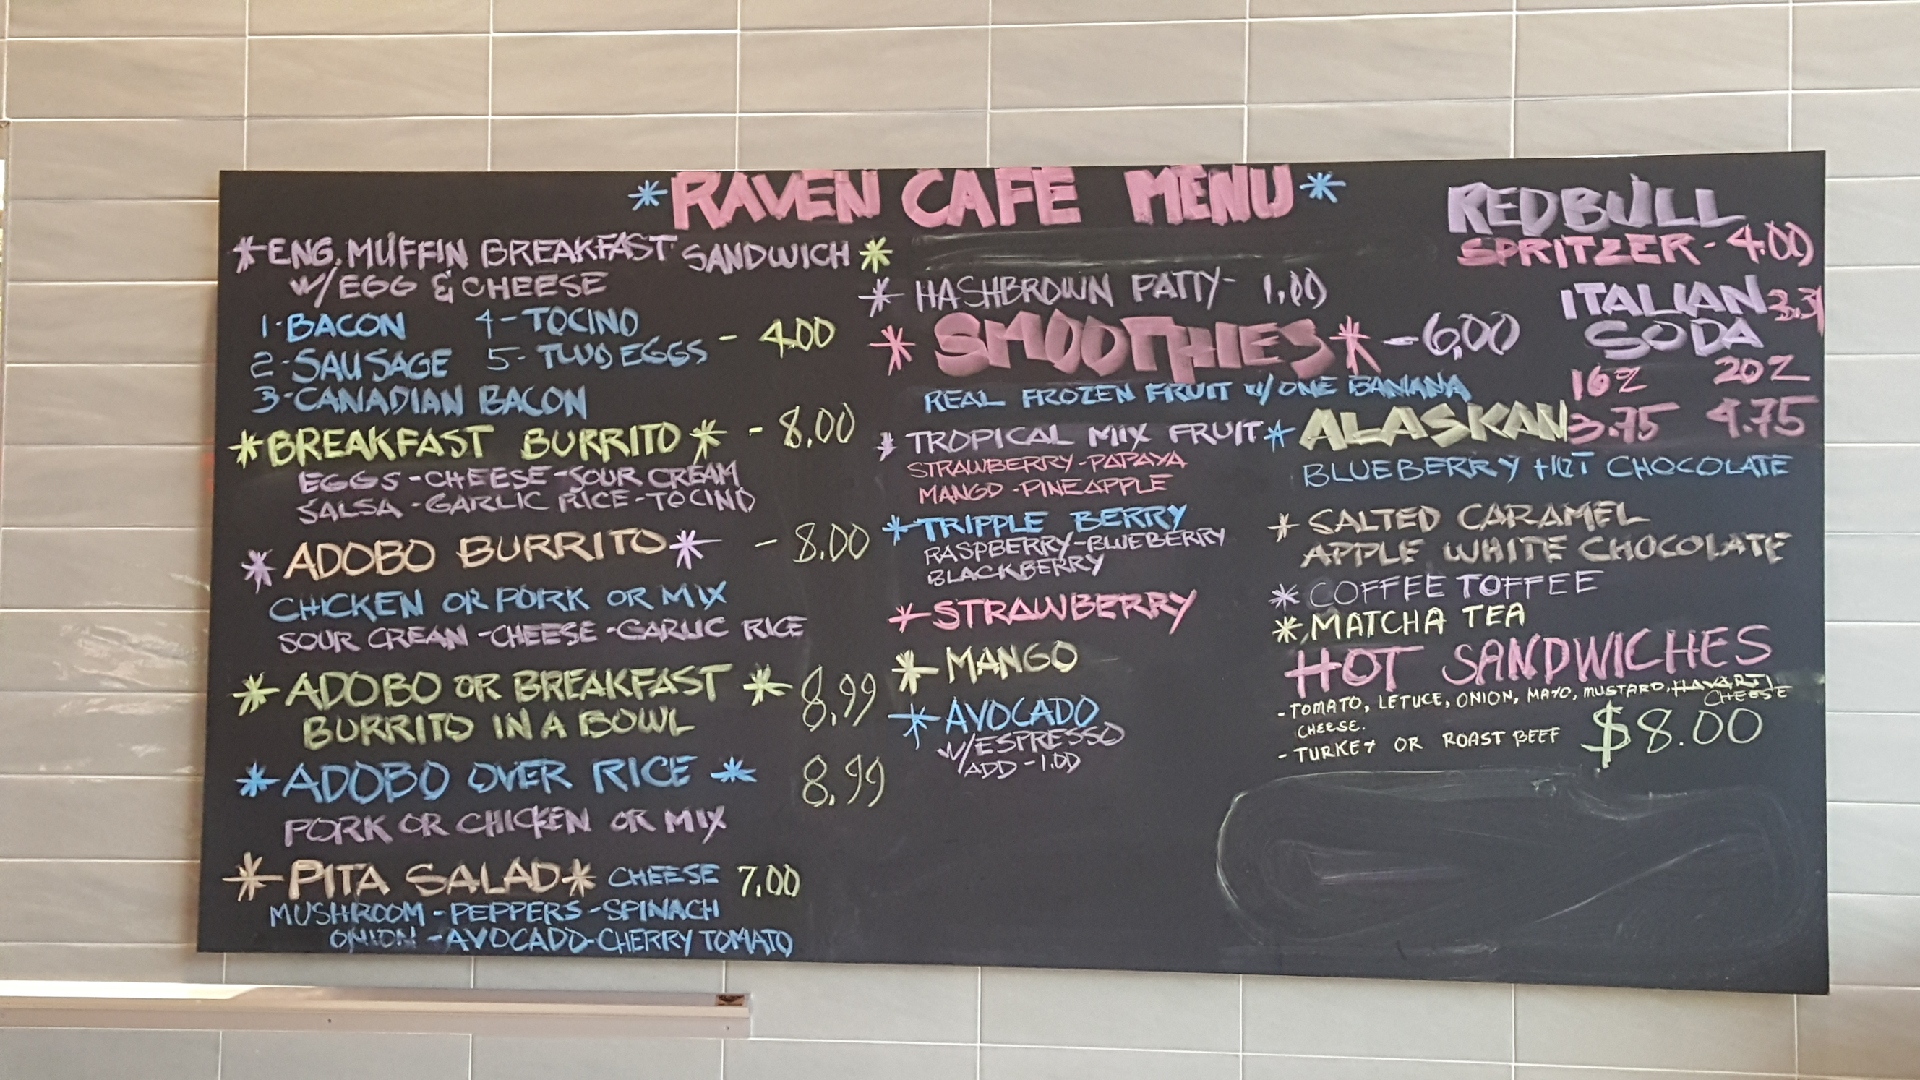 *RAVEN CAFE MENU*
*ENG. MUFFIN BREAKFAST SANDWICH*
W/EGG & CHEESE
1-BACON 4-TOCINO
2-SAUSAGE 5-TWO EGGS - 4.00
3-CANADIAN BACON
*BREAKFAST BURRITO* - 8.00
EGGS-CHEESE-SOUR CREAM
SALSA-GARLIC RICE-TOCINO
*ADOBO BURRITO* - 8.00
CHICKEN OR PORK OR MIX
SOUR CREAN-CHEESE-GARLIC RICE
*ADOBO OR BREAKFAST* 8.99
BURRITO IN A BOWL
*ADOBO OVER RICE* 8.99
PORK OR CHICKEN OR MIX
*PITA SALAD* CHEESE 7.00
MUSHROOM-PEPPERS-SPINACH
ONION-AVOCADO-CHERRY TOMATO
*HASHBROWN PATTY- 1.00
*SMOOTHIES* -6.00
REAL FROZEN FRUIT W/ONE BANANA
*TROPICAL MIX FRUIT
STRAWBERRY-PAPAYA
MANGO-PINEAPPLE
*TRIPPLE BERRY
RASPBERRY-BLUEBERRY
BLACKBERRY
*STRAWBERRY
*MANGO
*AVOCADO
W/ESPRESSO
ADD-1.00
REDBULL
SPRITZER-4.00
ITALIAN
SODA
16Z 20Z
*ALASKAN 3.75 4.75
BLUEBERRY HOT CHOCOLATE
*SALTED CARAMEL
APPLE WHITE CHOCOLATE
*COFFEE TOFFEE
*MATCHA TEA
HOT SANDWICHES
-TOMATO, LETUCE, ONION, MAYO, MUSTARD, HAVARTI
CHEESE
CHEESE.
-TURKEY OR ROAST BEEF $8.00